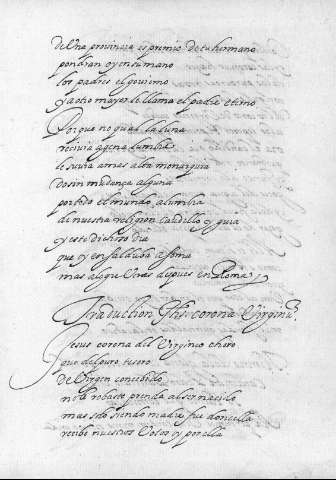 de Una provincia es premio de tu hermano
pondran oy en su mano
los padres el govierno
y a otro mayor le llama el padre eterno
Porque no qual la luna
recivia agena lumbre
le suvia a mas alta monarquia
do sin mudança alguna
por todo el mundo alumbra
de nuestra religion caudillo y guia
y este dichoso dia
que oy en
mas alegre Veras despues en Roma
Traduction Jhs. corona Virginũ.
Jesus corona del Virgineo choro
que del puro tesoro
de Virgen concebido
no le robaste prenda al ser nacido
mas solo siendo madre fue doncella
recibe nuestros Votos y por ella